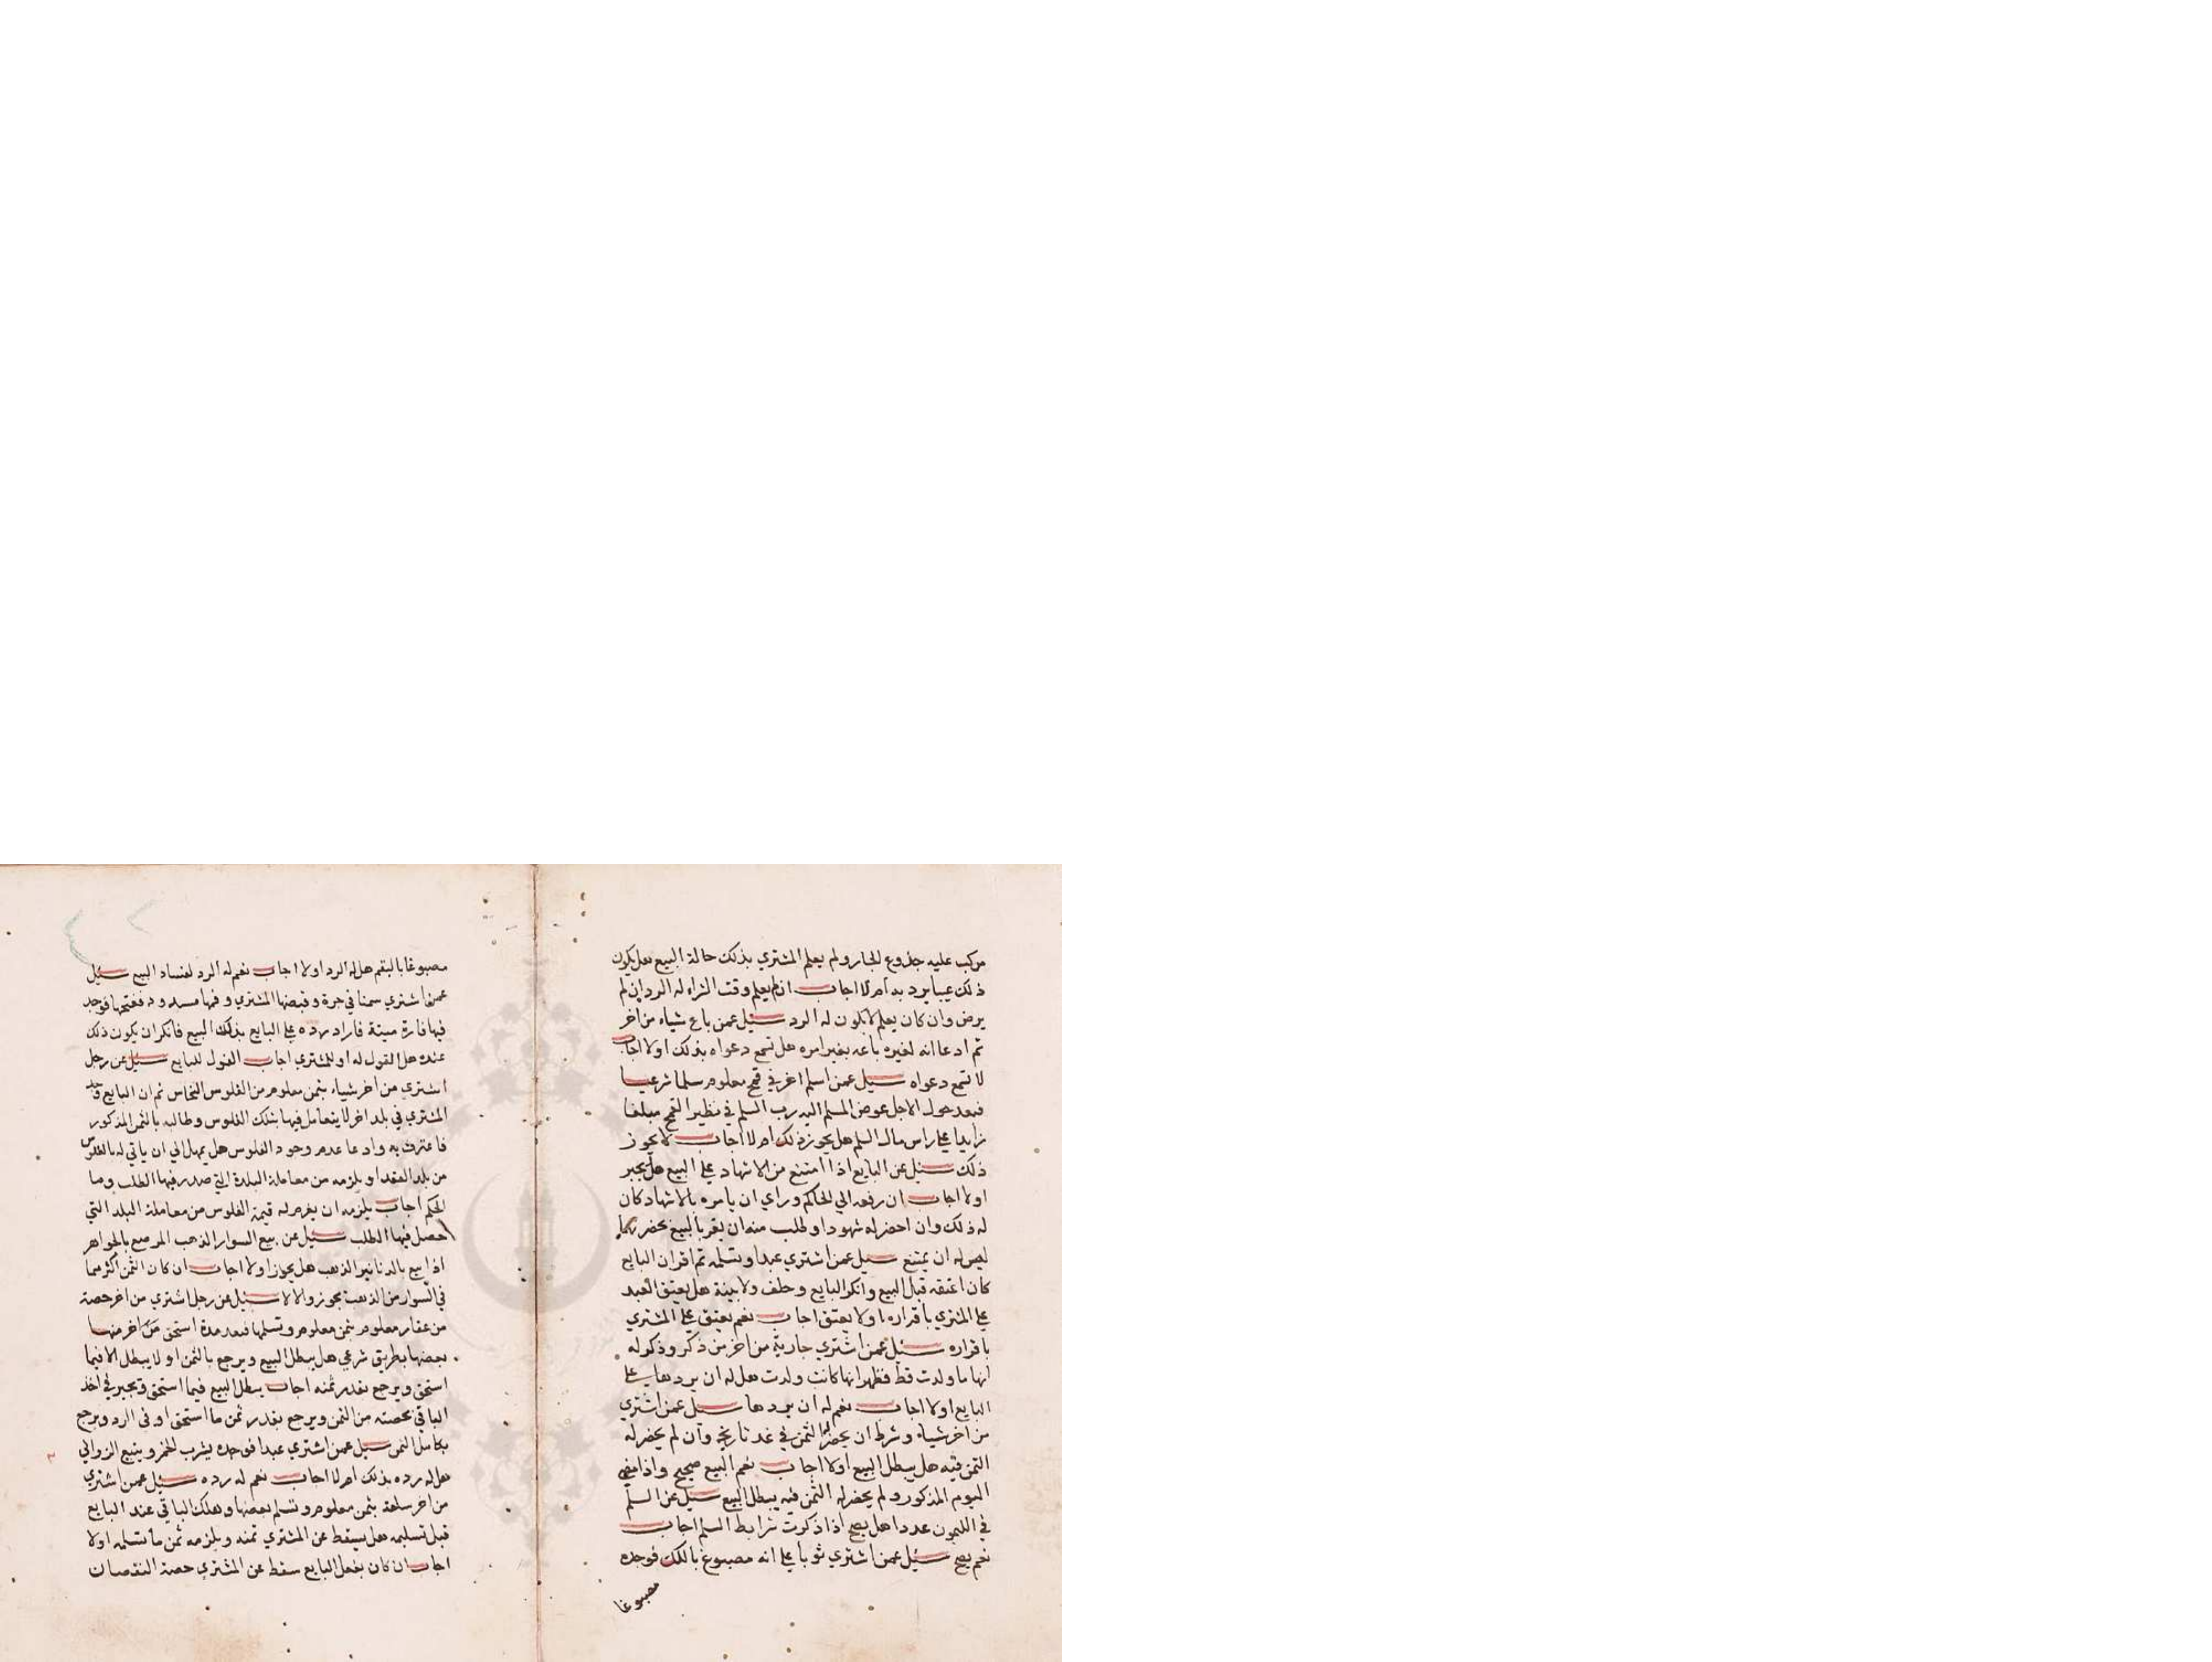 مركب عليه جذوع الجار ولم يعلم المشتري بذلك حالة البيع هل يكون
ذلك عيبا يرد به ام لا اجاب ان لم يعلم وقت الشراء له الرد ان لم
يرض وان كان يعلم لا يكون له الرد سئل عمن باع شياء من اخر
ثم ادعا انه لغيره باعه بغير امره هل تسمع دعواه بذلك اولا اجاب
لا تسمع دعواه سئل عمن اسلم اخر في قمح معلوم سلما شرعيا
فبعد حول الاجل عوض المسلم اليه رب السلم في نظير القمح مبلغا
زايدا على راس مال السلم هل يجوز ذلك ام لا اجاب لا يجوز
ذلك سئل عن البايع اذا امتنع من الاشهاد على البيع هل يجبر
اولا اجاب ان رفعه الي الحاكم وراي ان يامره بالاشهاد كان
له ذلك وان احضر له شهودا وطلب منه ان يقر بالبيع بحضرتهما
ليس له ان يمتنع سئل عمن اشتري عبدا وتسلمه ثم اقر ان البايع
كان اعتقه قبل البيع وانكر البايع وحلف ولا بينة هل يعتق العبد
على المشتري باقراره اولا يعتق اجاب نعم يعتق على المشتري
باقراره سئل عمن اشتري جارية من اخر من ذكر وذكر له
انها ما ولدت قط فظهر انها كانت ولدت هل له ان يردها على
البايع اولا اجاب نعم له ان يردها سئل عمن اشتري
من اخر شياء وشرط ان يحضر الثمن في غد تاريخه وان لم يحضر له
الثمن فيه هل يبطل البيع اولا اجاب نعم البيع صحيح واذا مضي
اليوم المذكور ولم يحضر له الثمن فيه يبطل البيع سئل عن السلم
في الليمون عددا هل يصح اذا ذكرت شرايط السلم اجاب
نعم يصح سئل عمن اشتري ثوبا على انه مصبوغ بالكك فوجده
مصبوغا
مصبوغا بالبقم هل له الرد اولا اجاب نعم له الرد لفساد البيع سئل
عمن اشتري سمنا في جرة وقبضها المشتري وفمها مسدود ففتحها فوجد
فيها فارة ميتة فاراد رده على البايع بذلك البيع فانكر ان يكون ذلك
عنده هل القول له او للمشتري اجاب القول للبايع سئل عن رجل
اشتري من اخر شياء بثمن معلوم من الفلوس النحاس ثم ان البايع وجد
المشتري في بلد اخر لا يتعامل فيها بتلك الفلوس وطالبه بالثمن المذكور
فاعترف به وادعا عدم وجود الفلوس هل يمهل الي ان ياتي له بالفلوس
من بلد العقد او يلزمه من معاملة البلدة التي صدر فيها الطلب وما
الحكم اجاب يلزمه ان يغرم له قيمة الفلوس من معاملة البلد التي
حصل فيها الطلب سئل عن بيع السوار الذهب المرصع بالجواهر
اذا بيع بالدنانير الذهب هل يجوز اولا اجاب ان كان الثمن اكثر مما
في السوار من الذهب يجوز والا لا سئل عن رجل اشتري من اخر حصة
من عقار معلوم بثمن معلوم وتسلمها فبعد مدة استحق من اخر منها
بعضها بطريق شرعي هل يبطل البيع ويرجع بالثمن او لا يبطل الا فيما
استحق ويرجع بقدر ثمنه اجاب يبطل البيع فيما استحق ويجبر في اخذ
الباقي بحصته من الثمن ويرجع بقدر ثمن ما استحق او في الرد ويرجع
بكامل الثمن سئل عمن اشتري عبدا فوجده يشرب الخمر ويتبع الزواني
هل له رده بذلك ام لا اجاب نعم له رده سئل عمن اشتري
من اخر سلعة بثمن معلوم وتسلم بعضها وهلك الباقي عند البايع
قبل تسليمه هل يسقط عن المشتري ثمنه ويلزمه ثمن ما تسلمه اولا
اجاب ان كان بفعل البايع سقط عن المشتري حصة النقصان